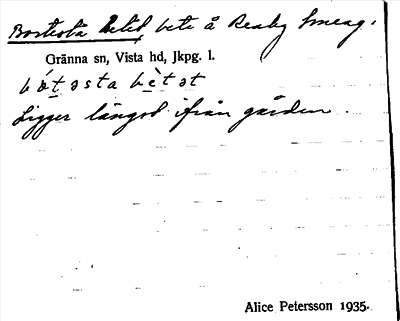 Bortersta betet, bete å Reaby Smeag.
Gränna sn, Vista hd, Jkpg. l.
bo̊təsta bètət
Ligger längst ifrån gården.
Alice Petersson 1935.